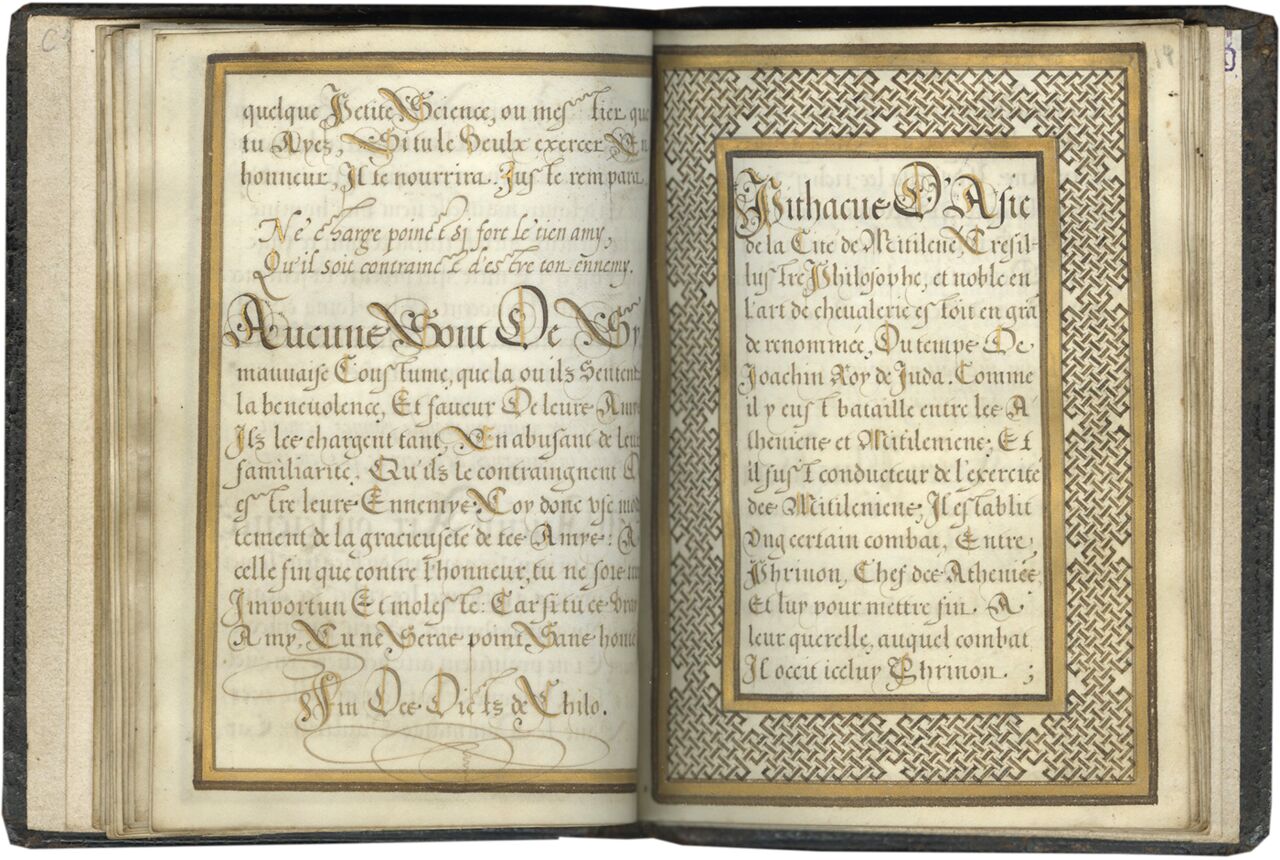 quelque Petite Science, ou mestier que
tu Ayes, Si tu le Veulx exercer En
honneur, Il te nourrira. Juste rempara.
Ne charge poinct si fort le tien amy,
Qu'il soit contrainct d'estre ton ennemy.
Aucuns Sont De Sy
mauvaise Coustume, que la ou ilz Sentent
la benevolence, Et faveur De leurs Amys
Ilz les chargent tant, En abusant de leur
familiarite, Qu'ilz le contraingnent D
estre leurs Ennemys Toy donc use mod
tement de la gracieuseté de tes Amys: A
celle fin que contre l'honneur, tu ne sois
Importun Et moleste: Car si tu es vray
Amy, Tu ne Seras point Sans honte
Fin Des Dictz de Chilo.
14
Pithacus D'Asie
de la Cité de Mitilene Tresil-
lustre Philosophe, et noble en
l'art de chevalerie estoit en grā
de renommée, Du temps De
Joachin Roy de Juda. Comme
il y eust bataille entre les A
theniens et Mitileniens, Et
il fust conducteur de l'exercite
des Mitileniens, Il establit
Ung certain combat, Entre
Phrinon, Chef des Atheniēs
Et luy pour mettre fin A
leur querelle, auquel combat
Il occit icelluy Phrinon ;